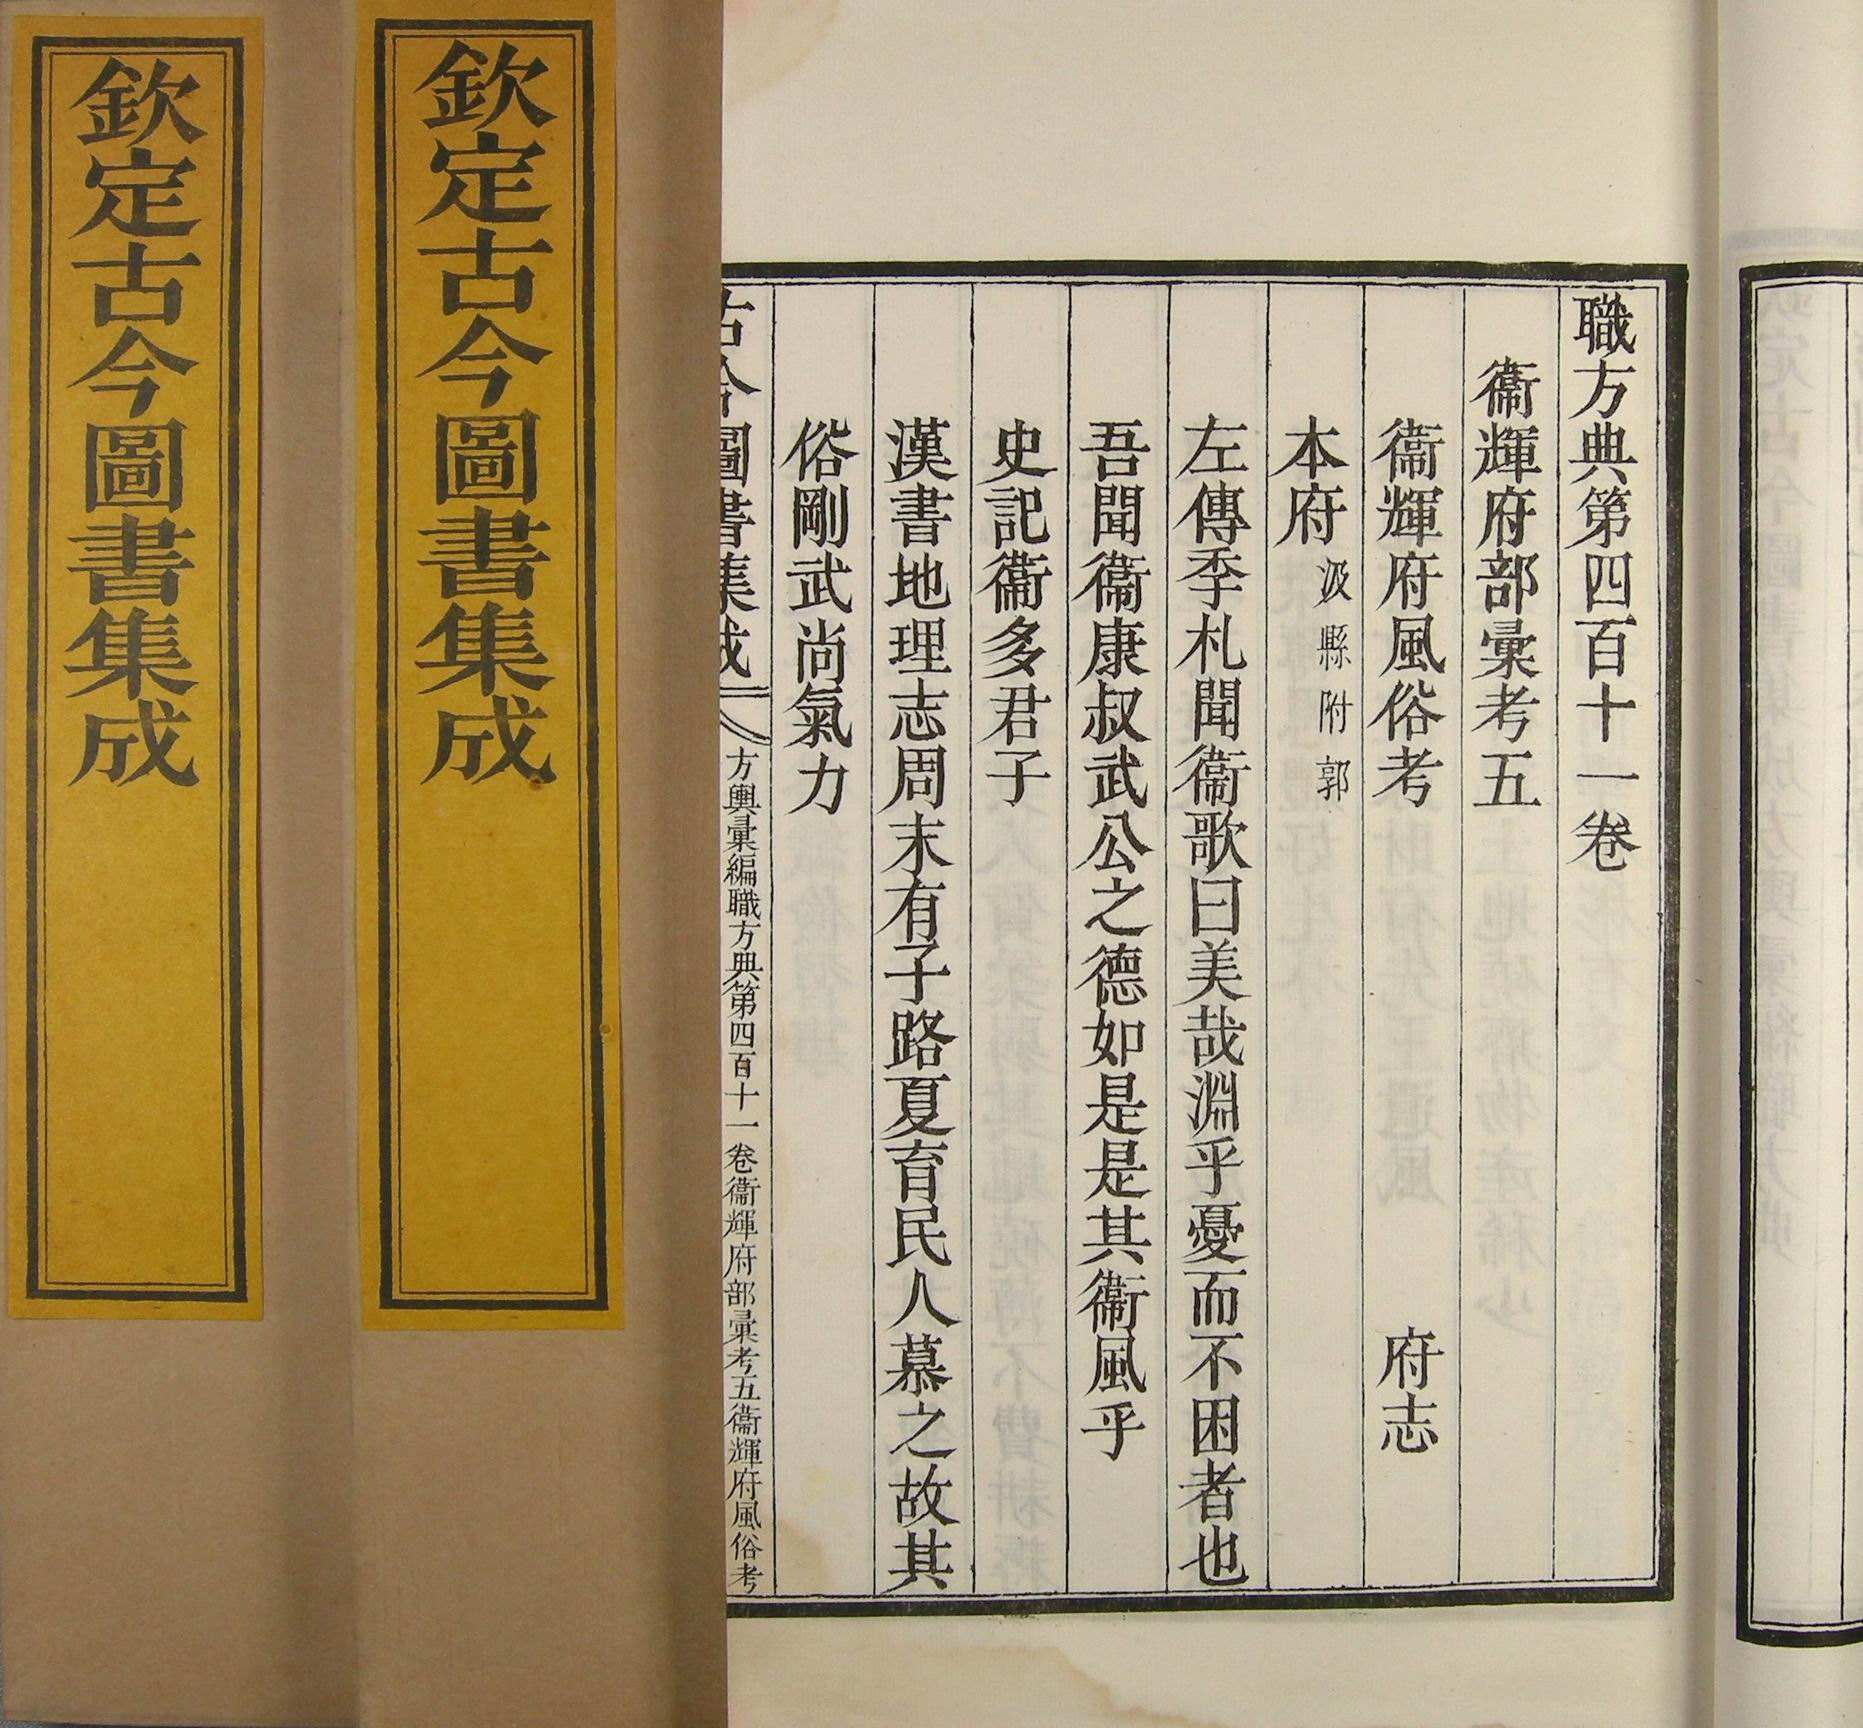 欽定古今圖書集成
欽定古今圖書集成
職方典第四百十一卷
衞輝府部彙考五
衞輝府風俗考 府志
本府 汲縣附郭
左傳季札聞衞歌曰美哉淵乎憂而不困者也
吾聞衞康叔武公之德如是是其衞風乎
史記衞多君子
漢書地理志周末有子路夏育民人慕之故其
俗剛武尚氣力
古今圖書集成 方輿彙編職方典第四百十一卷衞輝府部彙考五衞輝府風俗考